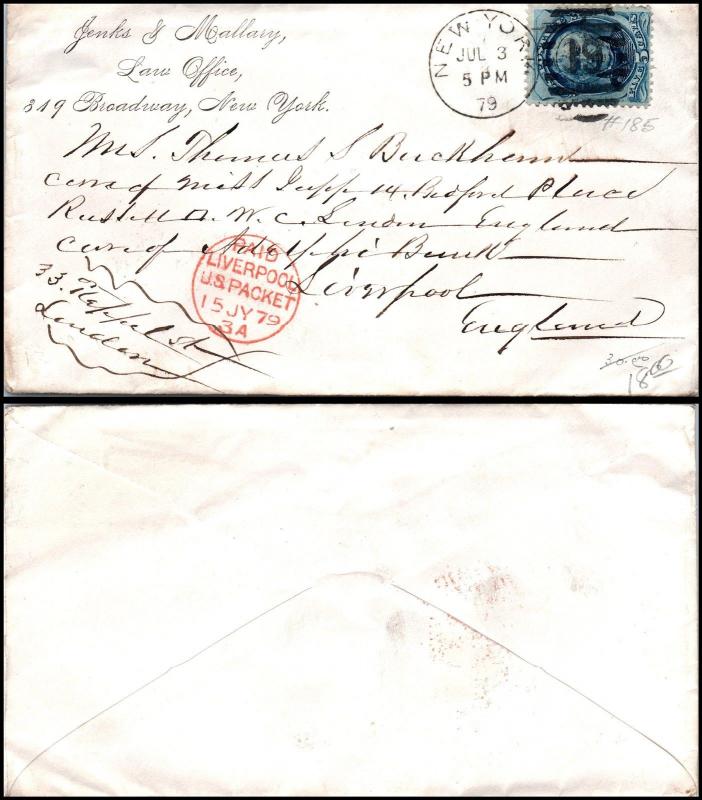 Jenks & Mallary,
Law Office,
319 Broadway, New York.
NEW YORK
JUL 3
5 PM
79
#185
Mrs. Thomas S Buckham
care of Miss Jupp 14. Bedford Place
Russell . W. C. London England
care of Adelphi Bank
Liverpool
England
33. Keppel St
London
PAID
LIVERPOOL
U.S. PACKET
15 JY 79
3A
30.00
18